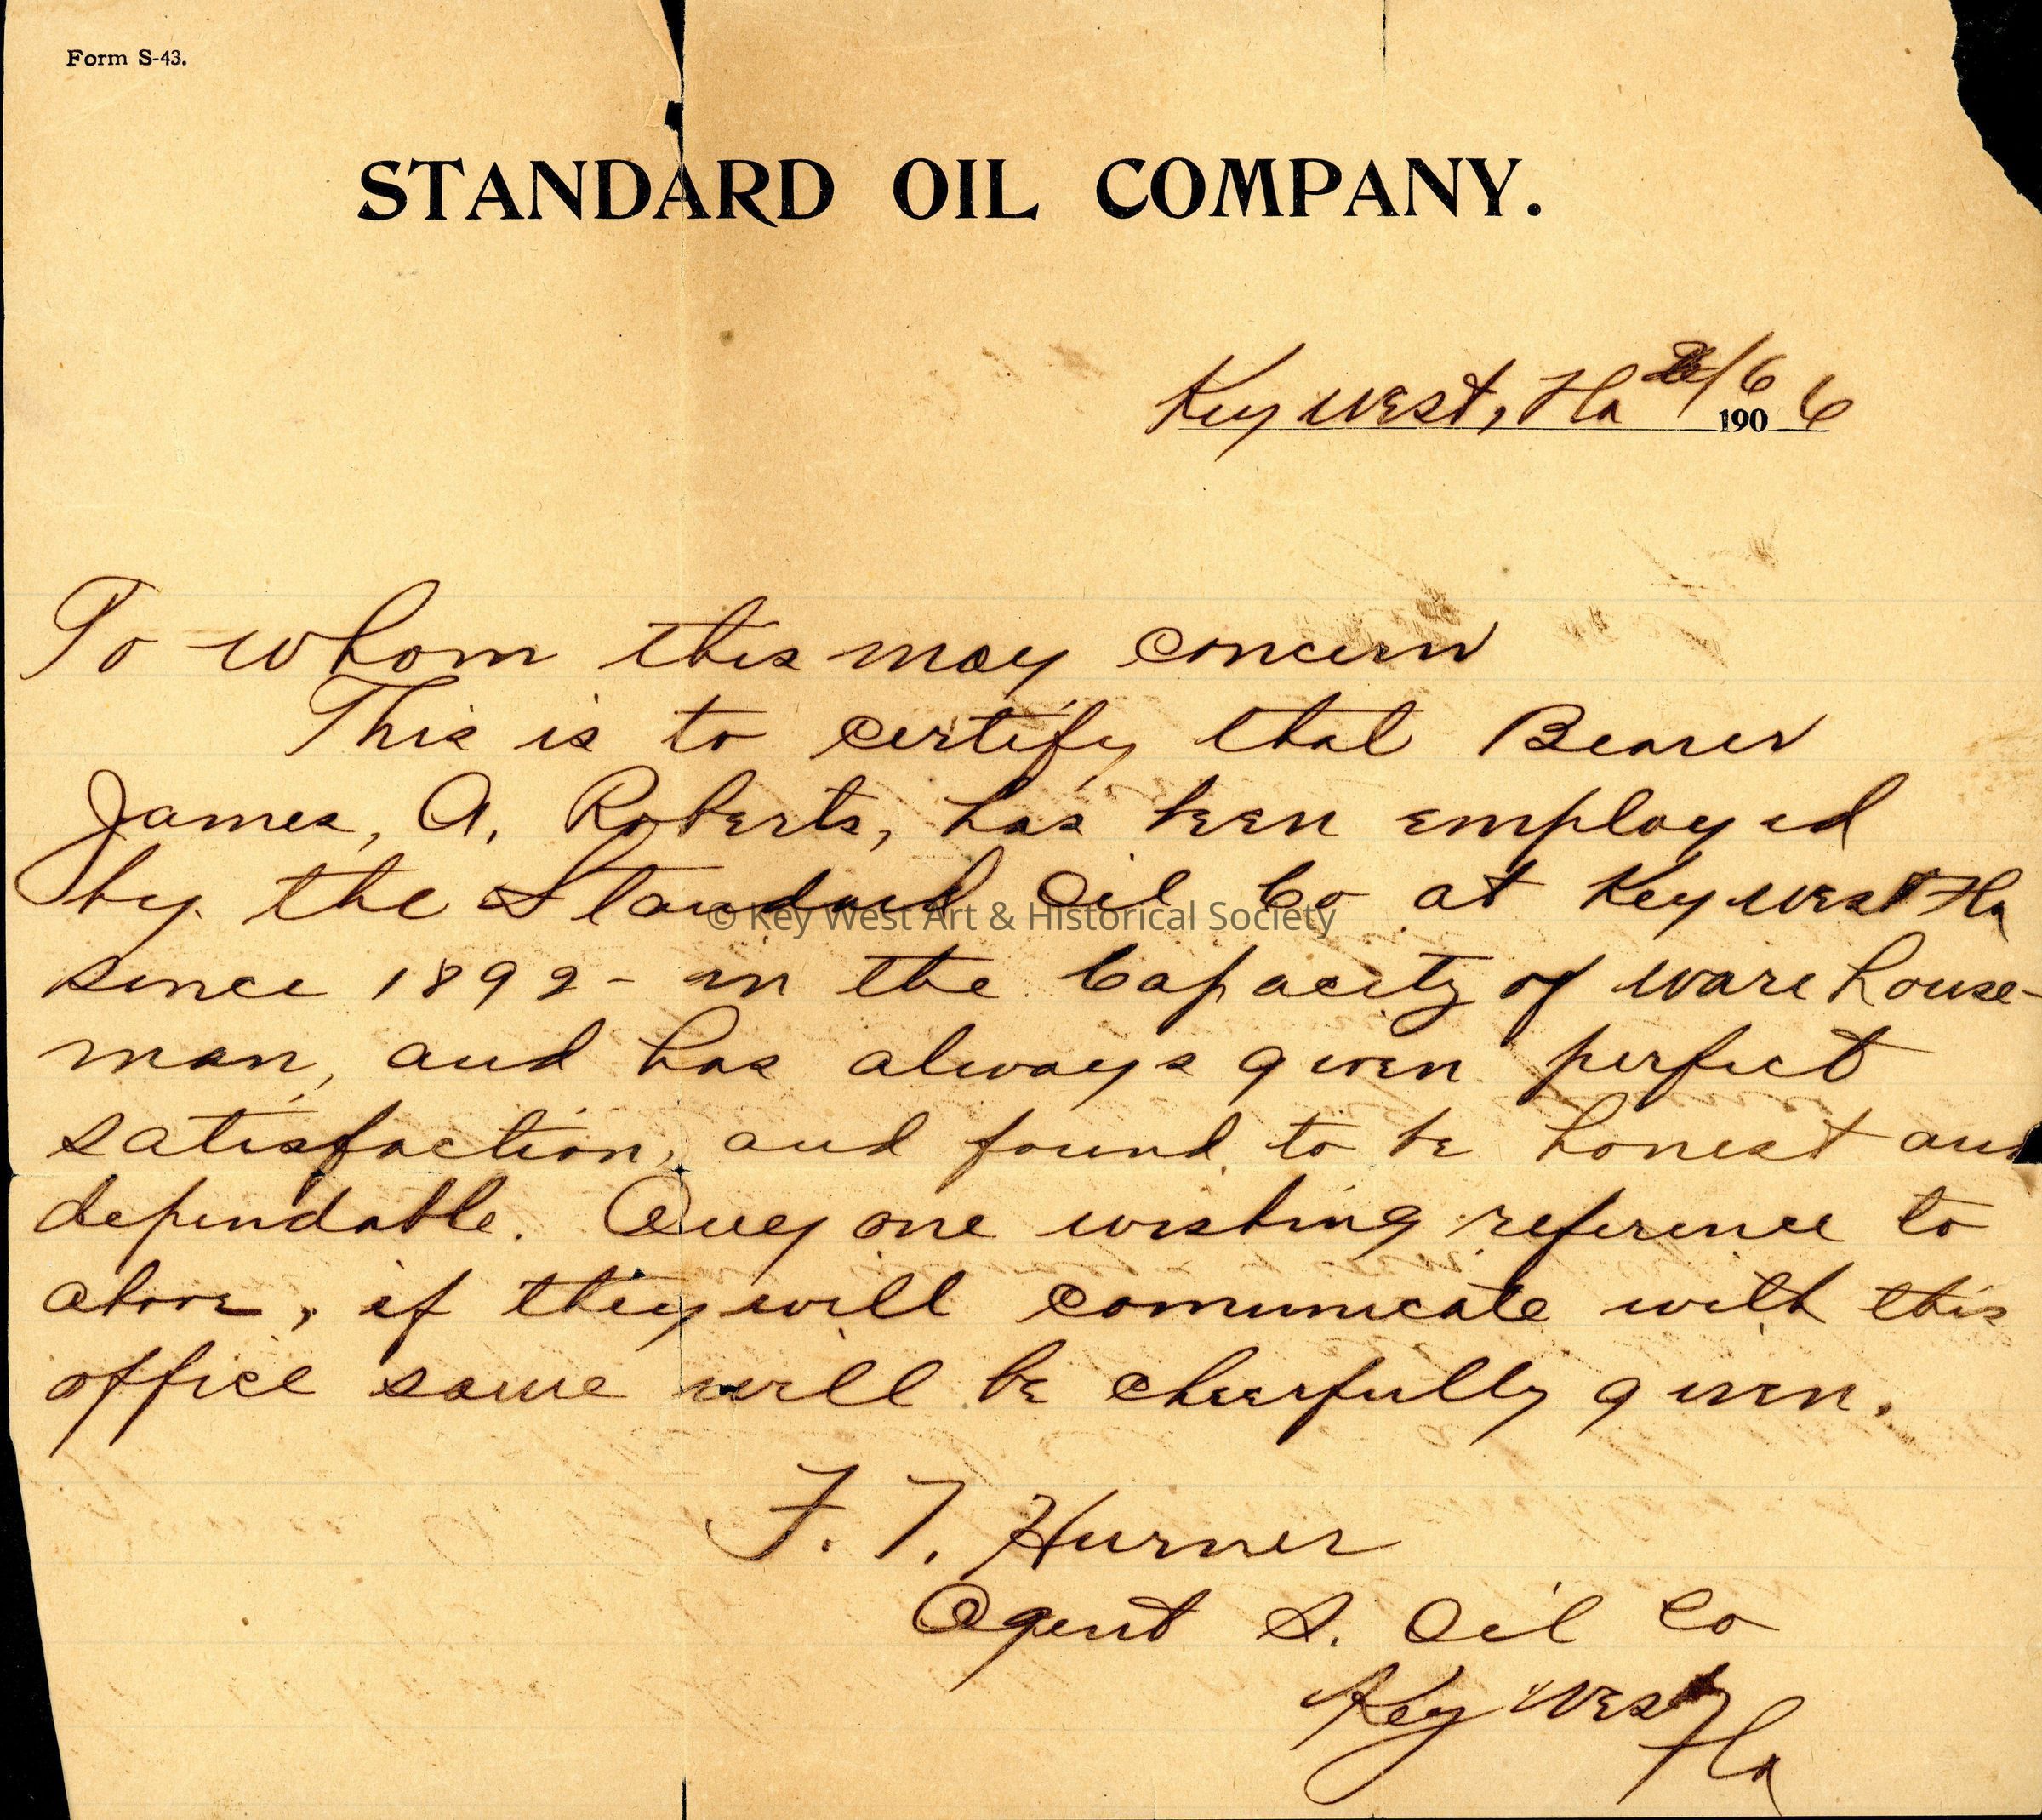 Form S-43.
STANDARD OIL COMPANY.
Key West, Fla /6 1906
To whom this may concern
This is to certify that Bearer
James, A. Roberts, has been employed
by the Standard Oil Co at Key West Fla
© Key West Art & Historical Society
since 1892 - in the Capacity of ware house-
man, and has always given perfect
satisfaction, and found to be honest and
dependable. Any one wishing reference to
above, if they will comunicate with this
office same will be cheerfully given.
F. T. Hurner
Agent S. Oil Co
Key West
Fla